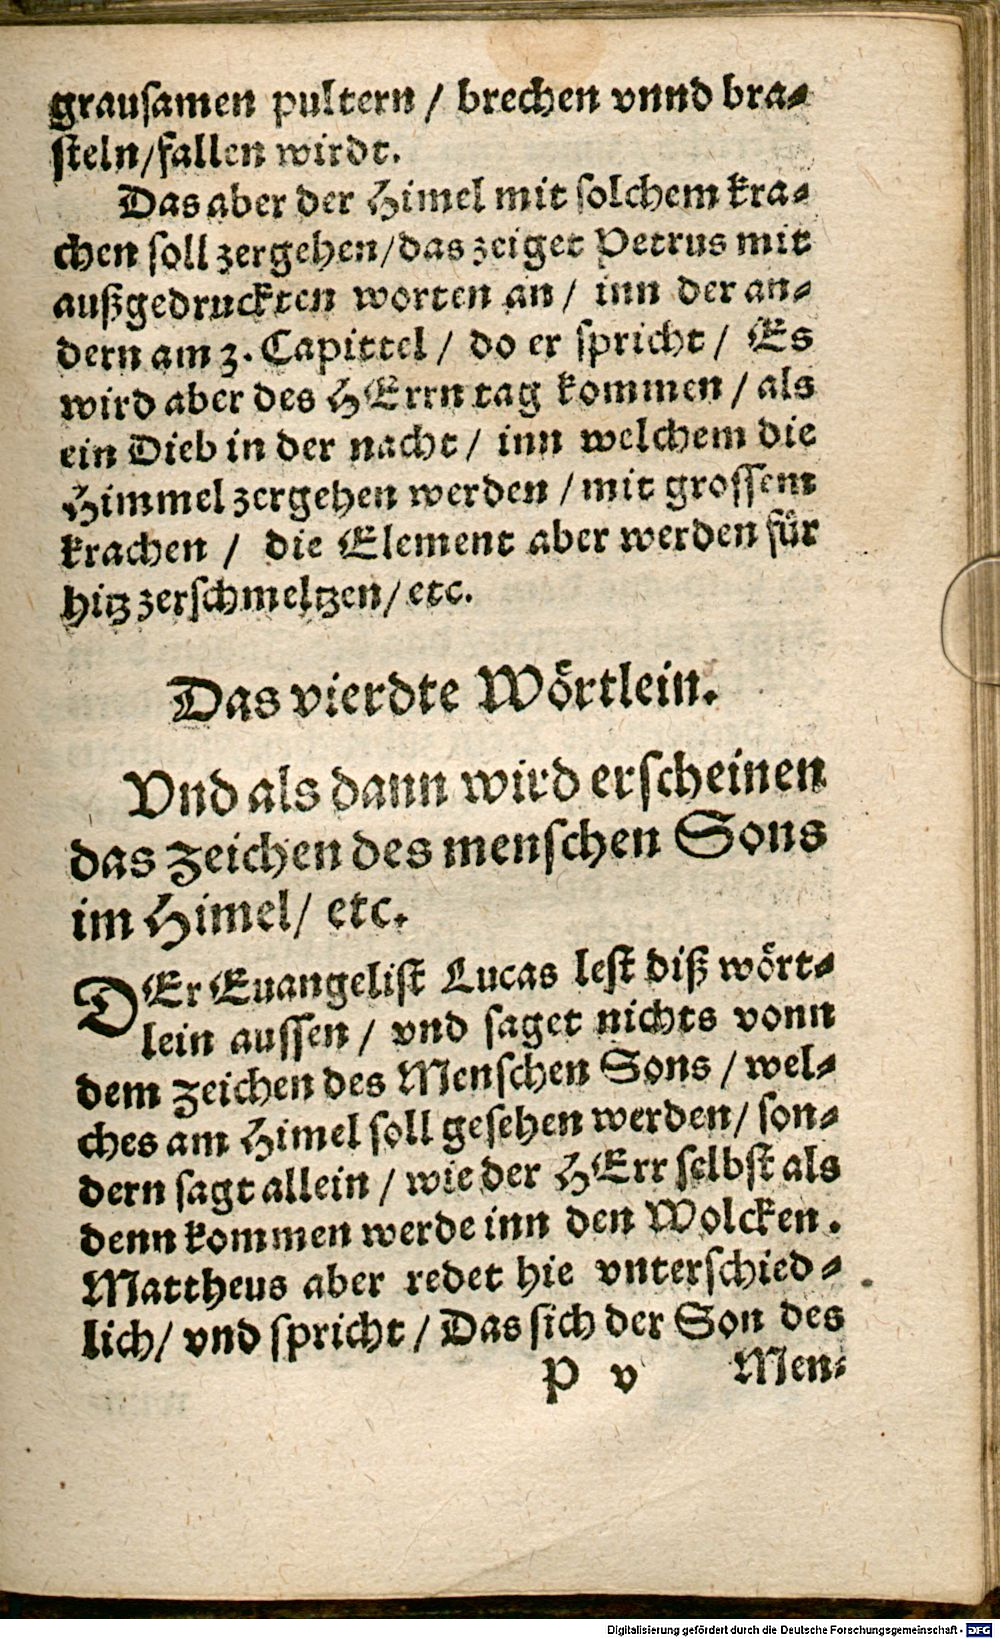 grausamen pultern / brechen vnnd bra⸗
steln/fallen wirdt.
Das aber der Himel mit solchem kra⸗
chen soll zergehen/das zeiget Petrus mit
außgedruckten worten an / inn der an⸗
dern am 3. Capittel / do er spricht / Es
wird aber des HErrn tag kommen / als
ein Dieb in der nacht / inn welchem die
Himmel zergehen werden / mit grossem
krachen / die Element aber werden für
hitz zerschmeltzen/ etc.
Das vierdte Wörtlein.
Vnd als dann wird erscheinen
das zeichen des menschen Sons
im Himel/ etc.
DEr Euangelist Lucas lest diß wört⸗
lein aussen / vnd saget nichts vonn
dem zeichen des Menschen Sons / wel⸗
ches am Himel soll gesehen werden/ son⸗
dern sagt allein / wie der HErr selbst als
denn kommen werde inn den Wolcken.
Mattheus aber redet hie vnterschied⸗
lich/ vnd spricht / Das sich der Son des
P v Men⸗
Digitalisierung gefördert durch die Deutsche Forschungsgemeinschaft - DFG